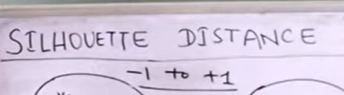 SILHOUETTE DISTANCE
-1 to +1